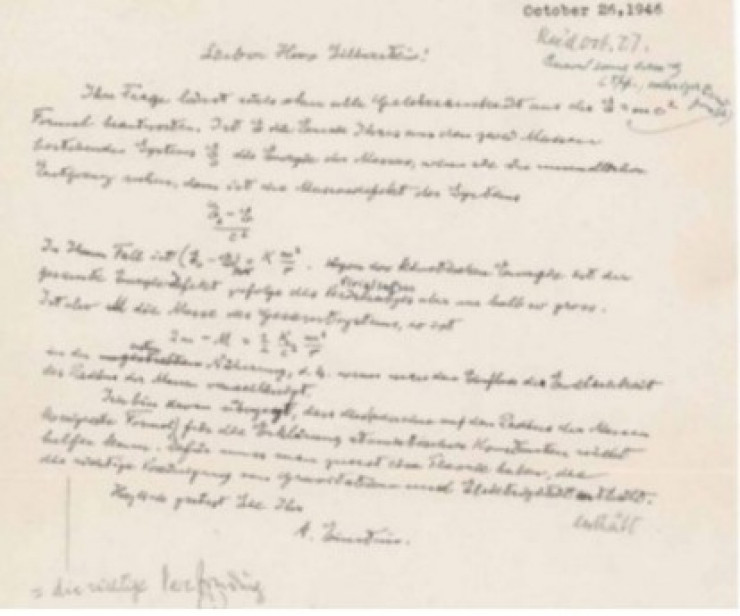 October 26, 1946
Rec'd Oct. 27.
Lieber Herr Silberstein!
Ihre Frage lässt sich ohne alle Gelehrsamkeit aus der E = mc²
Formel beantworten. Ist E die Energie Ihres aus den zwei Massen
bestehenden Systems E₀ die Energie der Massen, wenn sie in unendlicher
Entfernung ruhen, dann ist der Massendefekt des Systems
E₀ - E
c²
In Ihrem Fall ist (E₀ - E) = K m²/r . Wegen der kinetischen Energie ist der
gesamte Energie-Defekt zufolge des aber nur halb so gross.
Ist also M die Masse des Gesamtsystems, so ist
2m - M = 1/2 K/c² m²/r
in der Näherung, d. h. wenn man den Einfluss der Endlichkeit
des Radius der Massen vernachlässigt.
Ich bin davon überzeugt, dass die auf den Radius der Massen
korrigierte Formel für die Erklärung atomistischer Konstanten nicht
helfen kann. Dafür muss man zuerst eine Theorie haben, die
die richtige Vereinigung von Gravitation und Elektrizität enthält.
enthält
Herzlich grüsst Sie Ihr
A. Einstein.
= die richtige